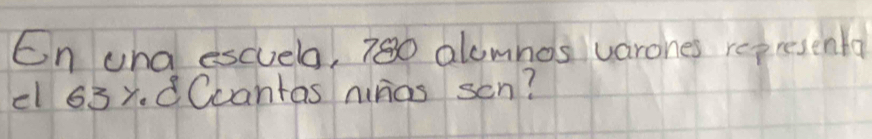 En una escuela, 780 alumnos varones representa
el 63%. ¿Cuantas niñas son?